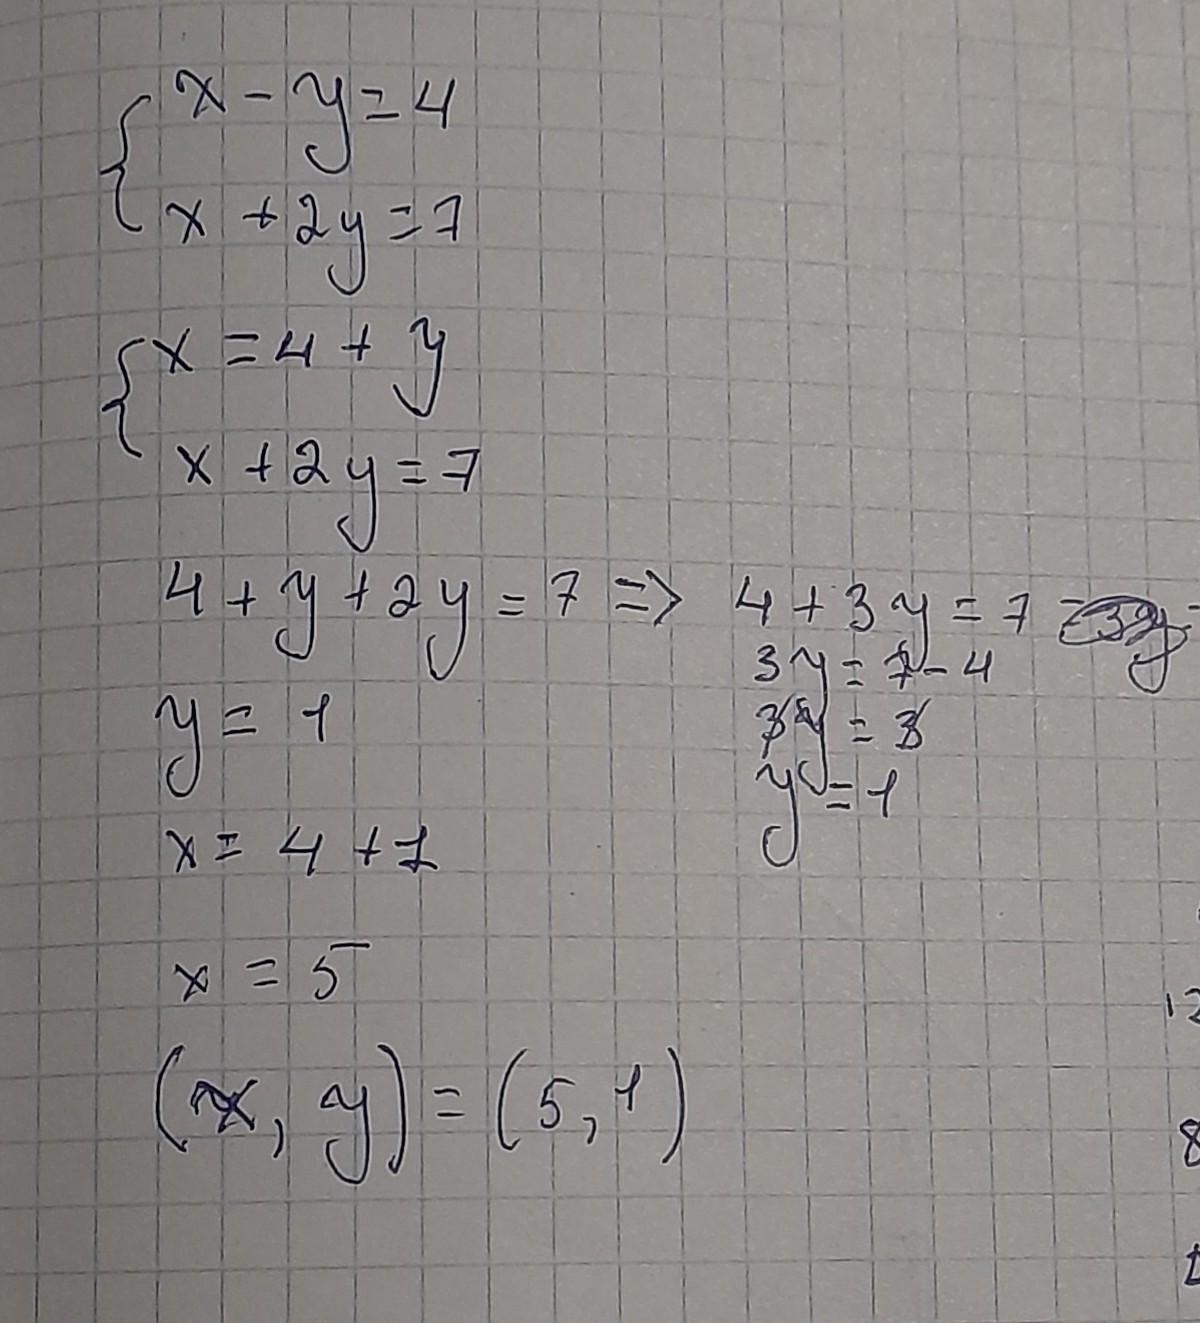 x - y = 4
x + 2y = 7
x = 4 + y
x + 2y = 7
4 + y + 2y = 7 => 4 + 3y = 7
3y = 7 - 4
3y = 3
y = 1
y = 1
x = 4 + 1
x = 5
(x, y) = (5, 1)
12
8